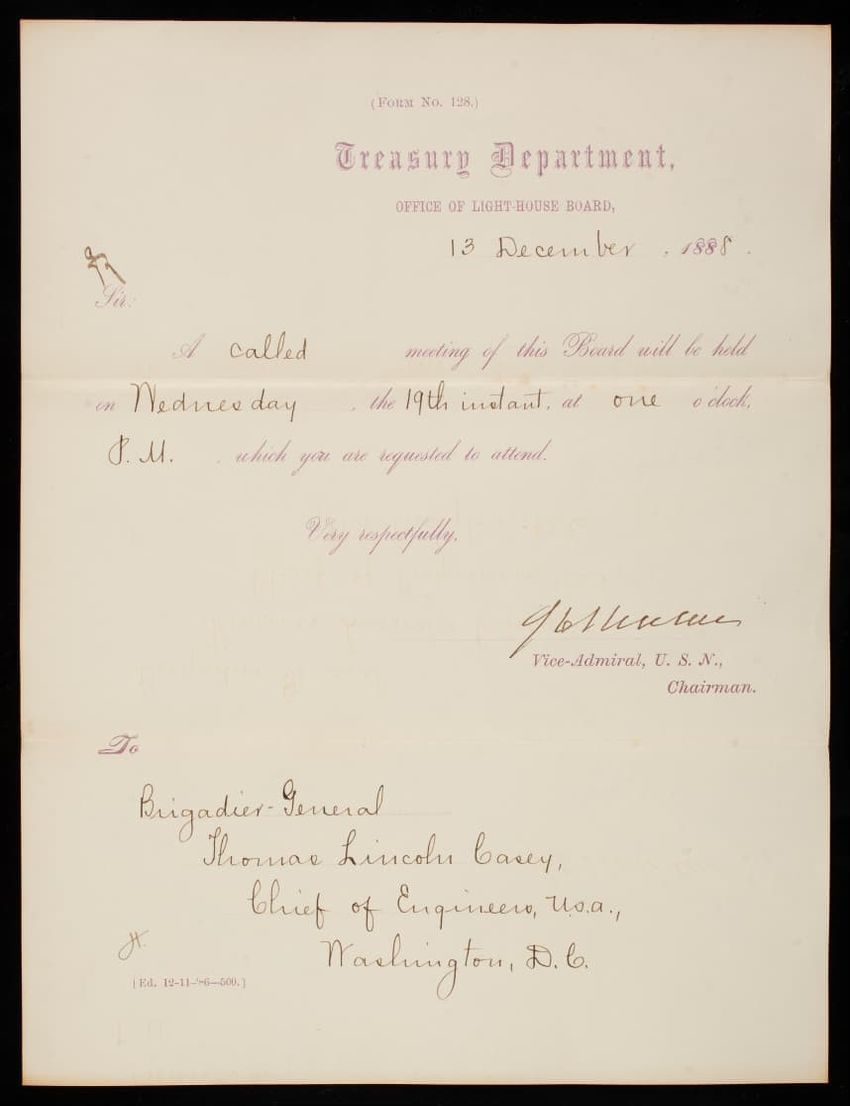 (FORM No. 128.)
Treasury Department,
OFFICE OF LIGHT-HOUSE BOARD,
13 December, 1888.
Sir:
A called meeting of this Board will be held
on Wednesday, the 19th instant, at one o'clock,
P. M., which you are requested to attend.
Very respectfully,
Vice-Admiral, U. S. N.,
Chairman.
To
Brigadier-General
Thomas Lincoln Casey,
Chief of Engineers, U.S.A.,
Washington, D.C.
H.
[Ed. 12-11-'86—500.]